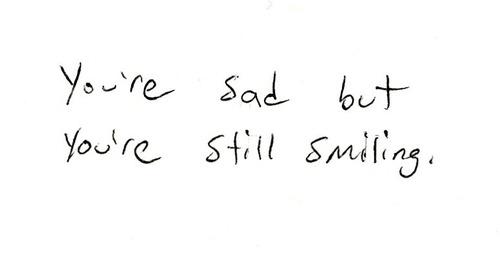 You're sad but
you're still smiling.